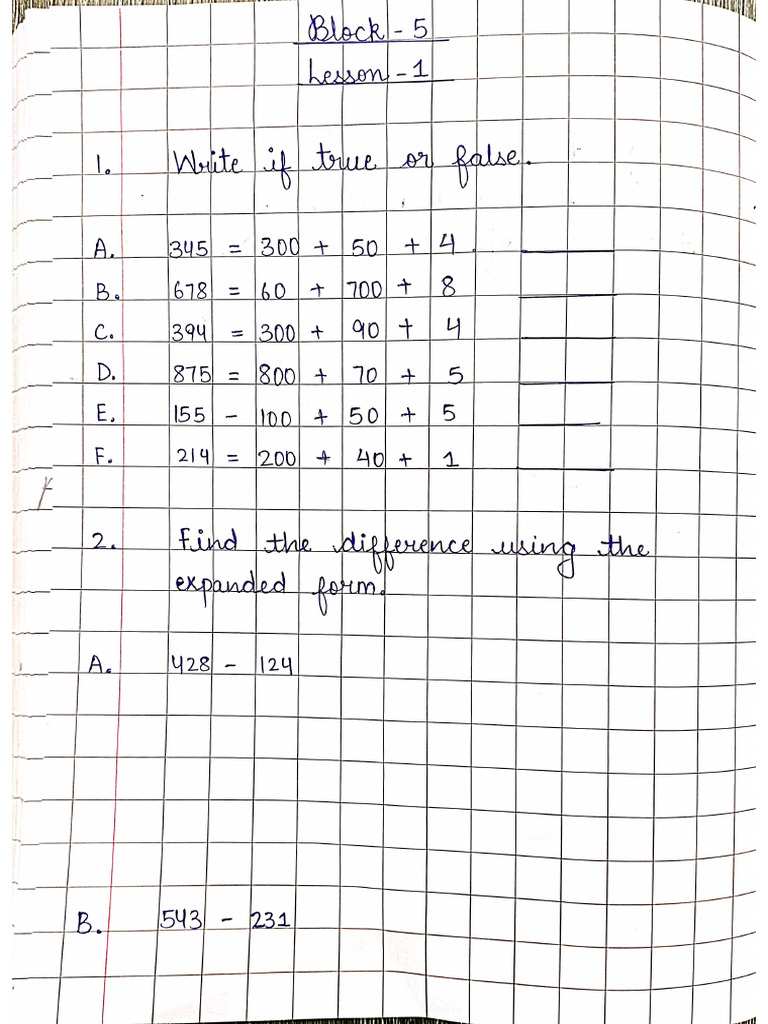 Block - 5
Lesson - 1
1. Write if true or false.
A. 345 = 300 + 50 + 4
B. 678 = 60 + 700 + 8
C. 394 = 300 + 90 + 4
D. 875 = 800 + 70 + 5
E. 155 - 100 + 50 + 5
F. 214 = 200 + 40 + 1
2. Find the difference using the
expanded form.
A. 428 - 124
B. 543 - 231